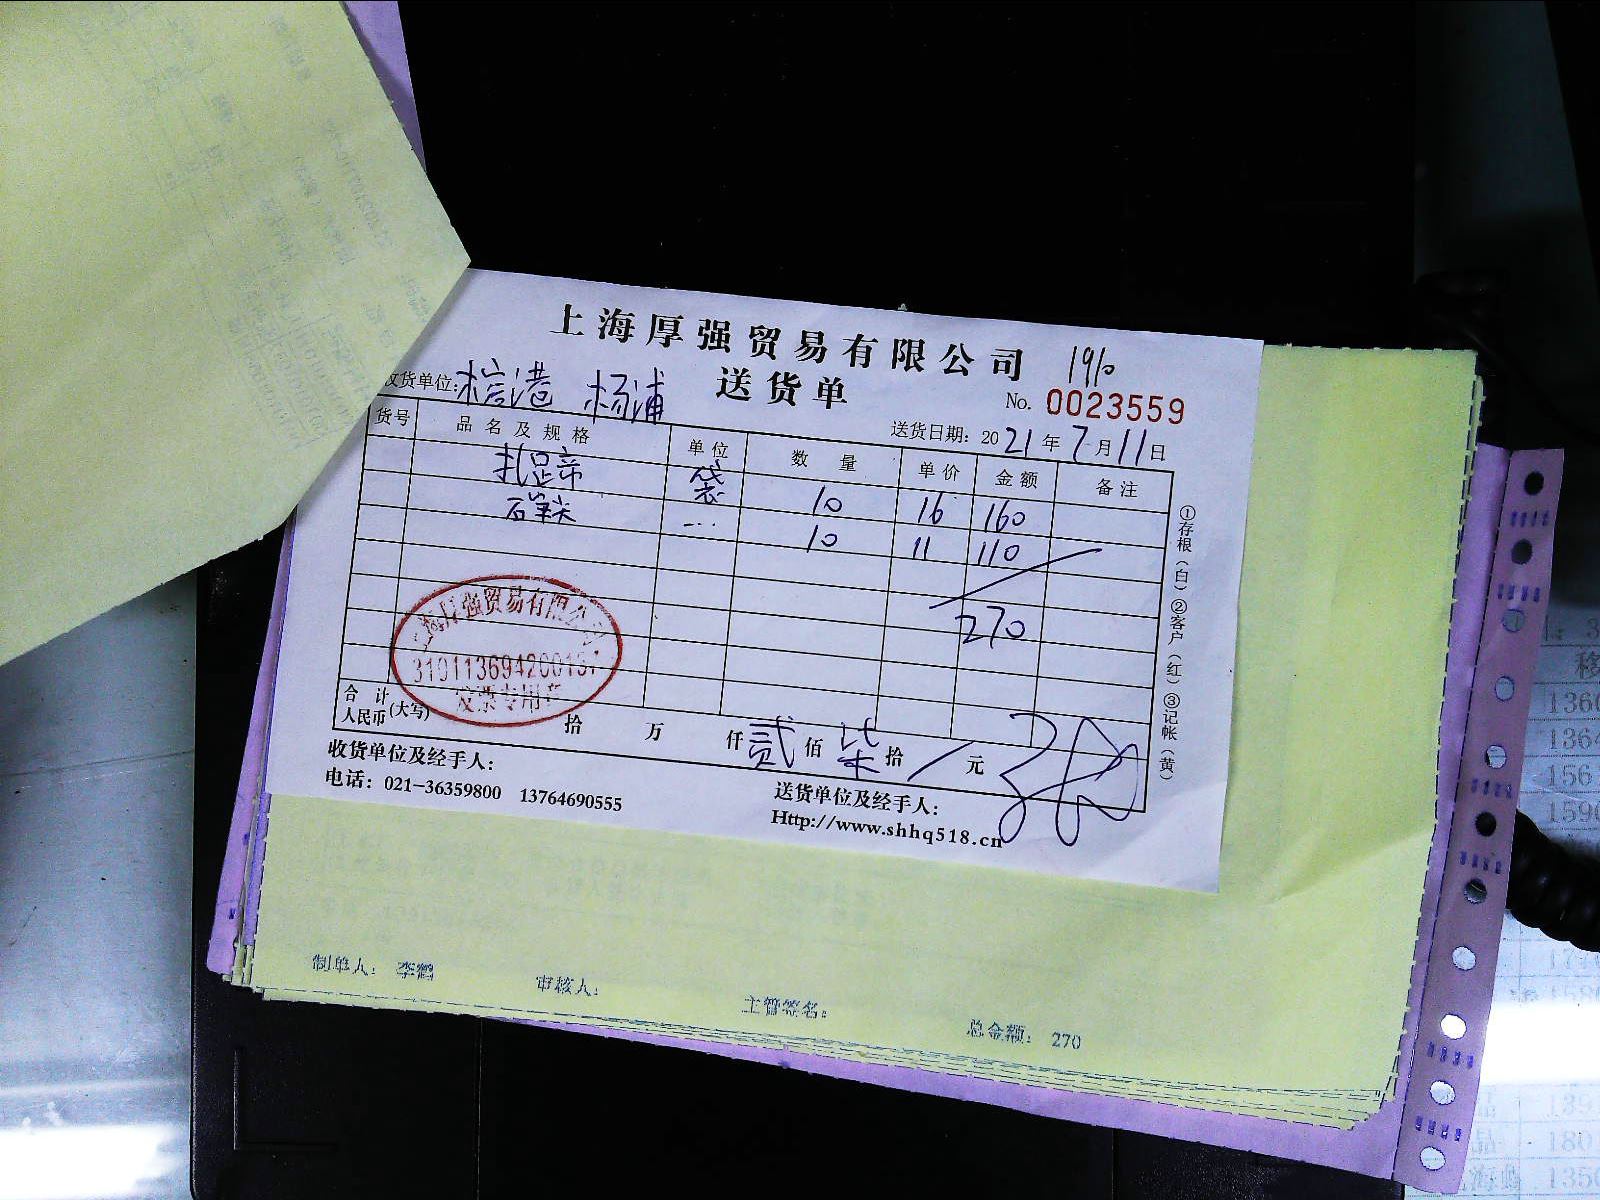 上海厚强贸易有限公司
1910
送货单
No. 0023559
收货单位: 棕港 杨浦
送货日期: 2021年7月11日
货号 品名及规格 单位 数量 单价 金额 备注
扎足帝 袋 10 16 160
石笔尖 ... 10 11 110
270
①存根(白)②客户(红)③记帐(黄)
强贸易有限公
310113694200157
发票专用章
合计人民币(大写) 拾 万 仟 贰 佰 柒 拾 / 元
收货单位及经手人:
送货单位及经手人:
电话: 021-36359800 13764690555
Http://www.shhq518.cn
制单人: 李鹤 审核人: 主管签名: 总金额: 270